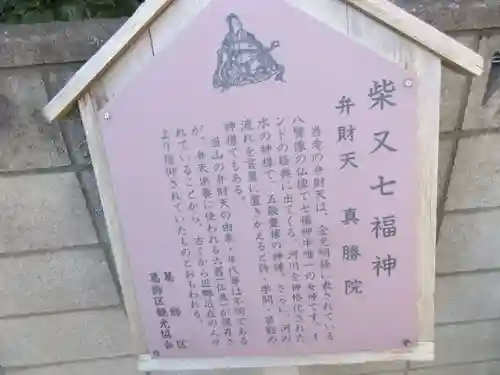 柴又七福神
弁財天　真勝院
当寺の弁財天は、金光明経に表されている
八臂像の仏様で七福神中唯一の女神です。イ
ンドの経典に出てくる、河川を神格化された
水の神様で、五穀豊穣の神様、さらに、河の
流れを言葉に置きかえると詩・学問・芸能の
神様でもある。
当山の弁財天の由来・年代等は不明である
が、弁天供養に使われる六器（仏具）が現存さ
れていることから、古くから近郷近在の人々
より信仰されていたものとおもわれる。
葛飾区
葛飾区観光協会